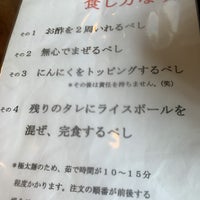 食し方は
その1 お酢を2周いれるべし
その2 無心でまぜるべし
その3 にんにくをトッピングするべし
*その後は責任を持ちません。(笑)
その4 残りのタレにライスボールを
混ぜ、完食するべし
*極太麺のため、茹で時間が10~15分
程度かかります。注文の順番が前後する